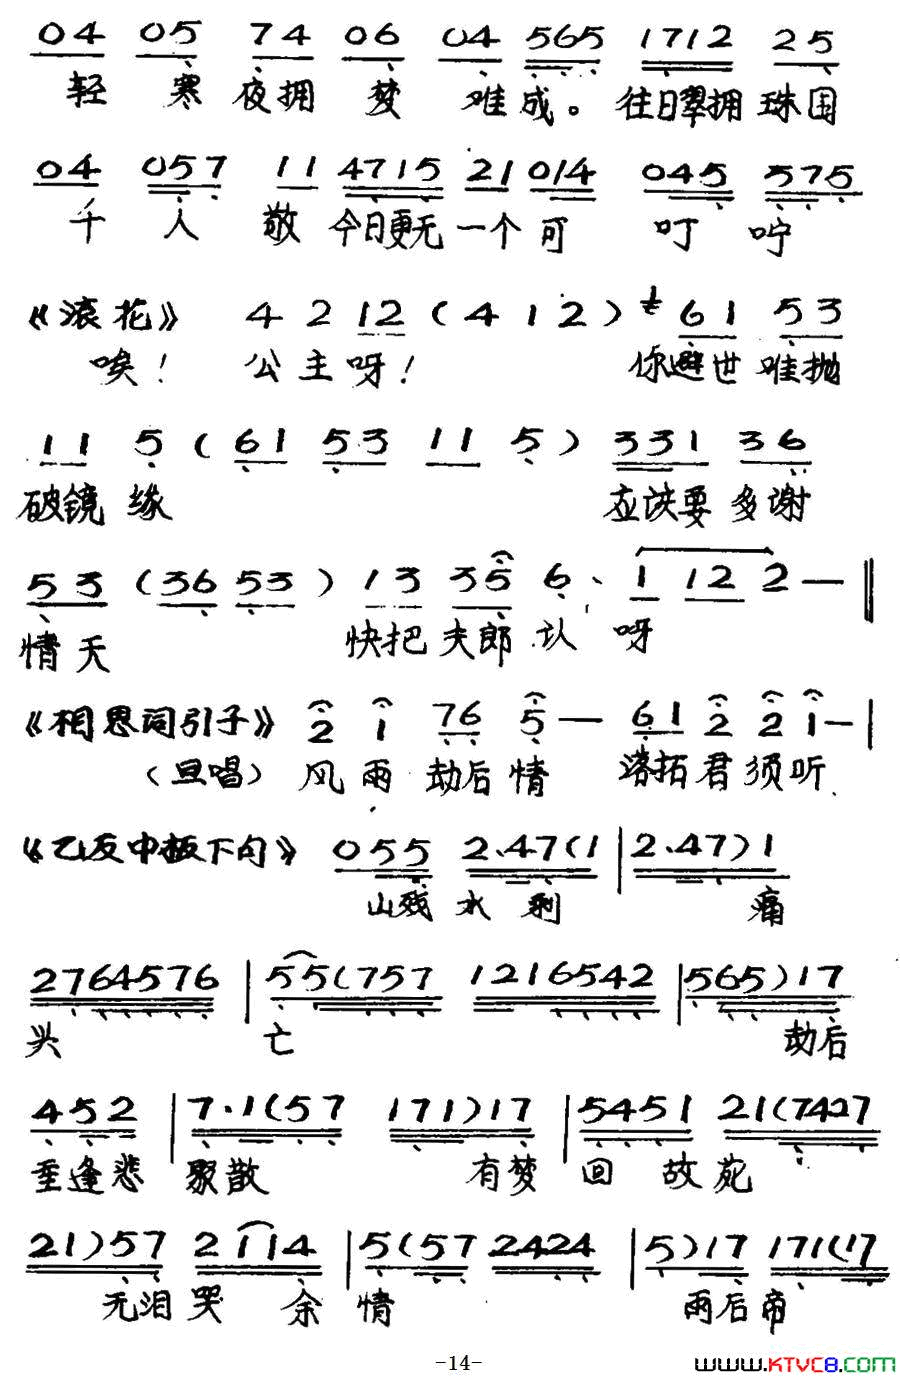 04 05 74 06 04 565 1712 25
轻 寒 夜拥 梦 难成。往日翠拥珠围
04 057 11 4715 21 014 045 575
千 人 敬 今日更无一个可 叮咛
《滚花》 4 2 12 (4 1 2) 61 53
唉! 公主呀! 你避世难抛
11 5 (61 53 11 5) 331 36
破镜缘 应该要多谢
53 (36 53) 13 35 6. 1 12 2 — ‖
情天 快把夫郎认呀
《相思词引子》 2 1 76 5 — 61 2 2 1 — |
(旦唱) 风雨劫后情 落拓君须听
《乙反中板下句》 055 2.47(1 | 2.47)1
山残水剩 痛
2764576 | 55(757 1216542 | 565)17
头 亡 劫后
452 | 7.1(57 171)17 | 5451 21(7427
重逢悲聚散 有梦回故苑
21)57 2114 | 5(57 2424 | 5)17 171(17
无泪哭余情 雨后帝
-14-
www.KTVC8.com